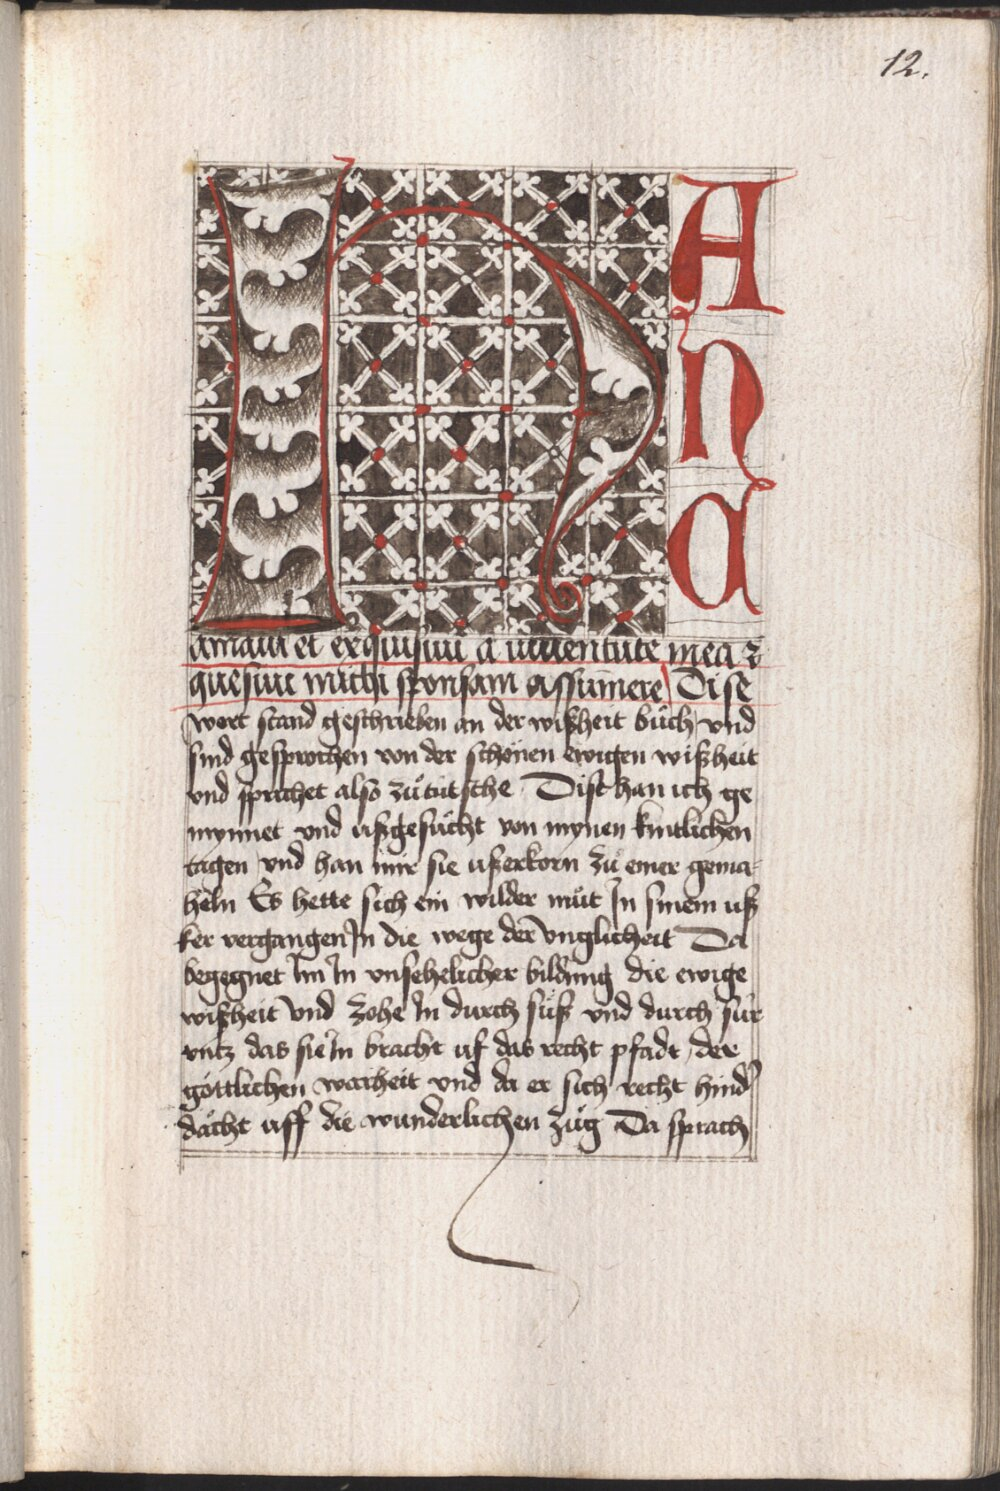 12.
H
A
N
C
amaui et exquisiui a iuuentute mea ꝛ
quesiui michi sponsam assumere Dise
wort stand geschrieben an der wißheit bůch vnd
sind gesprochen von der schönen ewigen wißheit
vnd sprichet also zů tütsche Dise han ich ge
mynnet vnd ußgesůcht von mynen kintlichen
tagen vnd han mir sie ußerkorn zů einer gema-
heln Es hette sich ein wilder můt In sinem uß
ker vergangen In die wege der vnglicheit Da
begegnet Im In vnsehelicher bildung die ewige
wißheit vnd zohe In durch süß vnd durch sur
vntz das sie In bracht uf das recht pfadt der
göttlichen warheit vnd da er sich recht hind
dächt uff die wunderlichen züg Da sprach